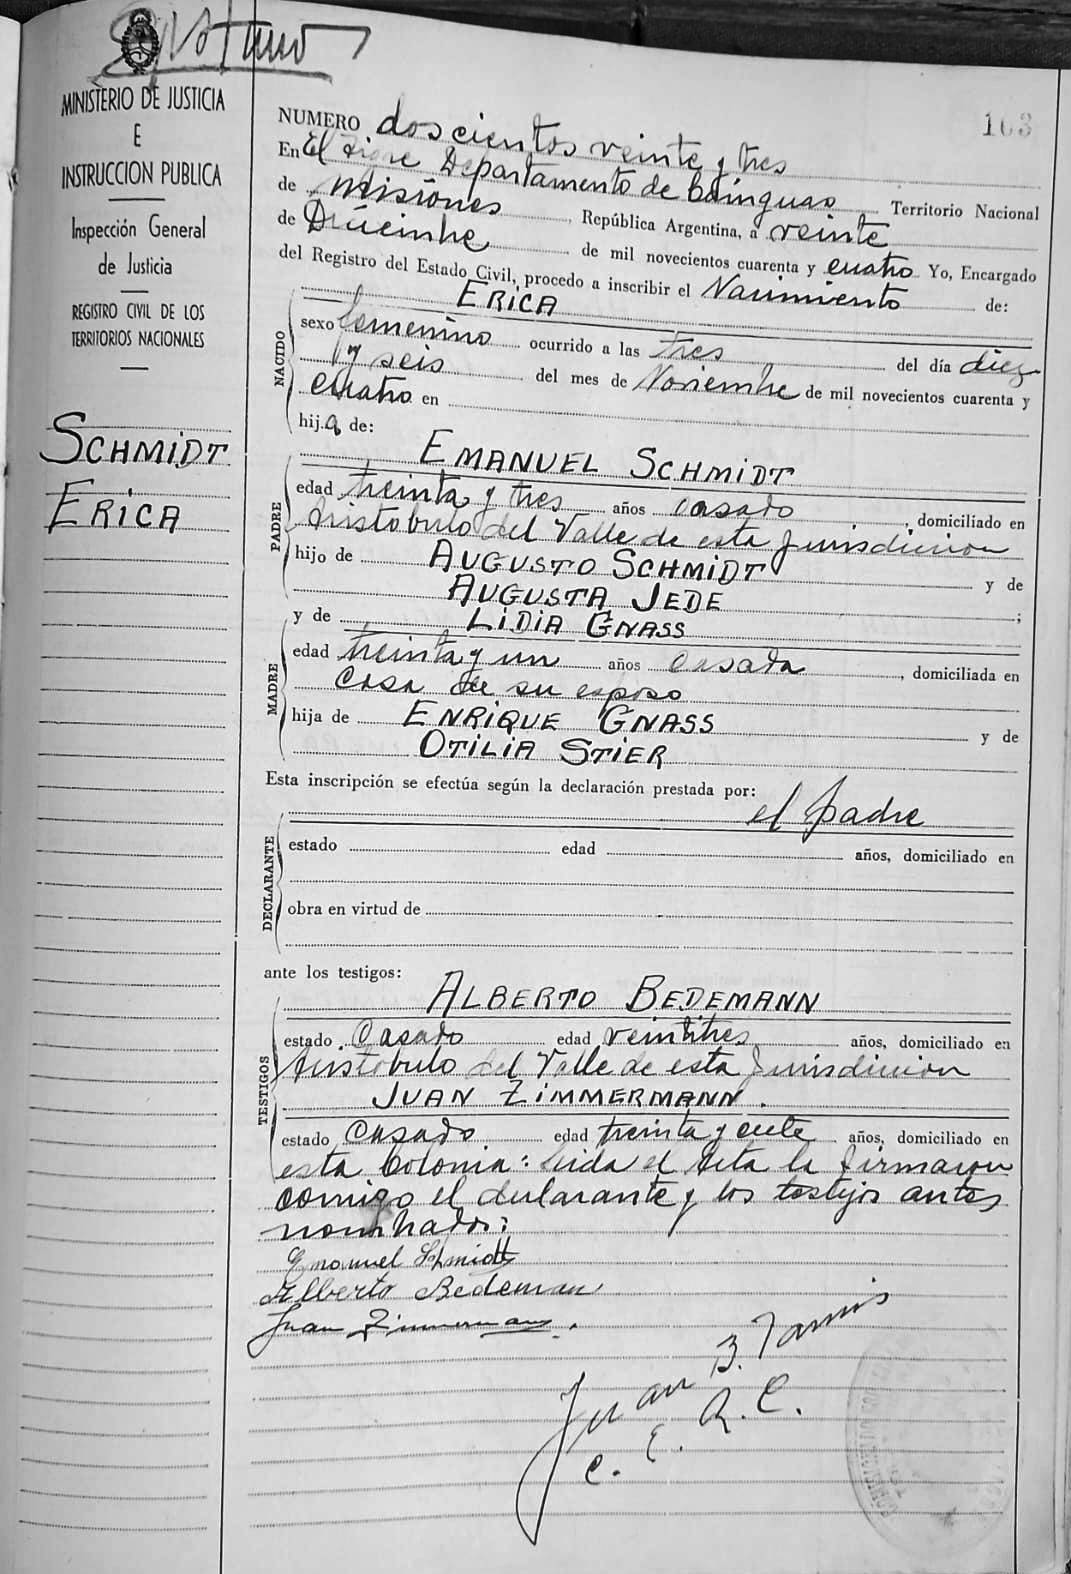 MINISTERIO DE JUSTICIA
E
INSTRUCCION PUBLICA
Inspección General
de Justicia
REGISTRO CIVIL DE LOS
TERRITORIOS NACIONALES
SCHMIDT
ERICA
163
NUMERO doscientos veinte y tres
En El Departamento de Cainguas
de Misiones, Territorio Nacional
República Argentina, a veinte
de Diciembre de mil novecientos cuarenta y cuatro Yo, Encargado
del Registro del Estado Civil, procedo a inscribir el Nacimiento de:
ERICA
NACIDO
sexo femenino ocurrido a las tres del día diez
y seis del mes de Noviembre de mil novecientos cuarenta y
cuatro en
hija de:
EMANUEL SCHMIDT
PADRE
edad treinta y tres años casado, domiciliado en
Aristobulo del Valle de esta Jurisdiccion
hijo de AUGUSTO SCHMIDT y de
AUGUSTA JEDE;
y de LIDIA GNASS
MADRE
edad treinta y un años casada, domiciliada en
casa de su esposo
hija de ENRIQUE GNASS y de
OTILIA STIER
Esta inscripción se efectúa según la declaración prestada por:
el padre
DECLARANTE
estado edad años, domiciliado en
obra en virtud de
ante los testigos:
ALBERTO BEDEMANN
TESTIGOS
estado Casado edad veintitres años, domiciliado en
Aristobulo del Valle de esta Jurisdiccion
JUAN ZIMMERMANN.
estado Casado edad treinta y años, domiciliado en
esta Colonia: Leida el Acta la firmaron
comigo el declarante y los testijos antes
nombrados:
Emanuel Schmidt
Alberto Bedeman
Juan Zimmermann.
Juan B.
E. R. C.